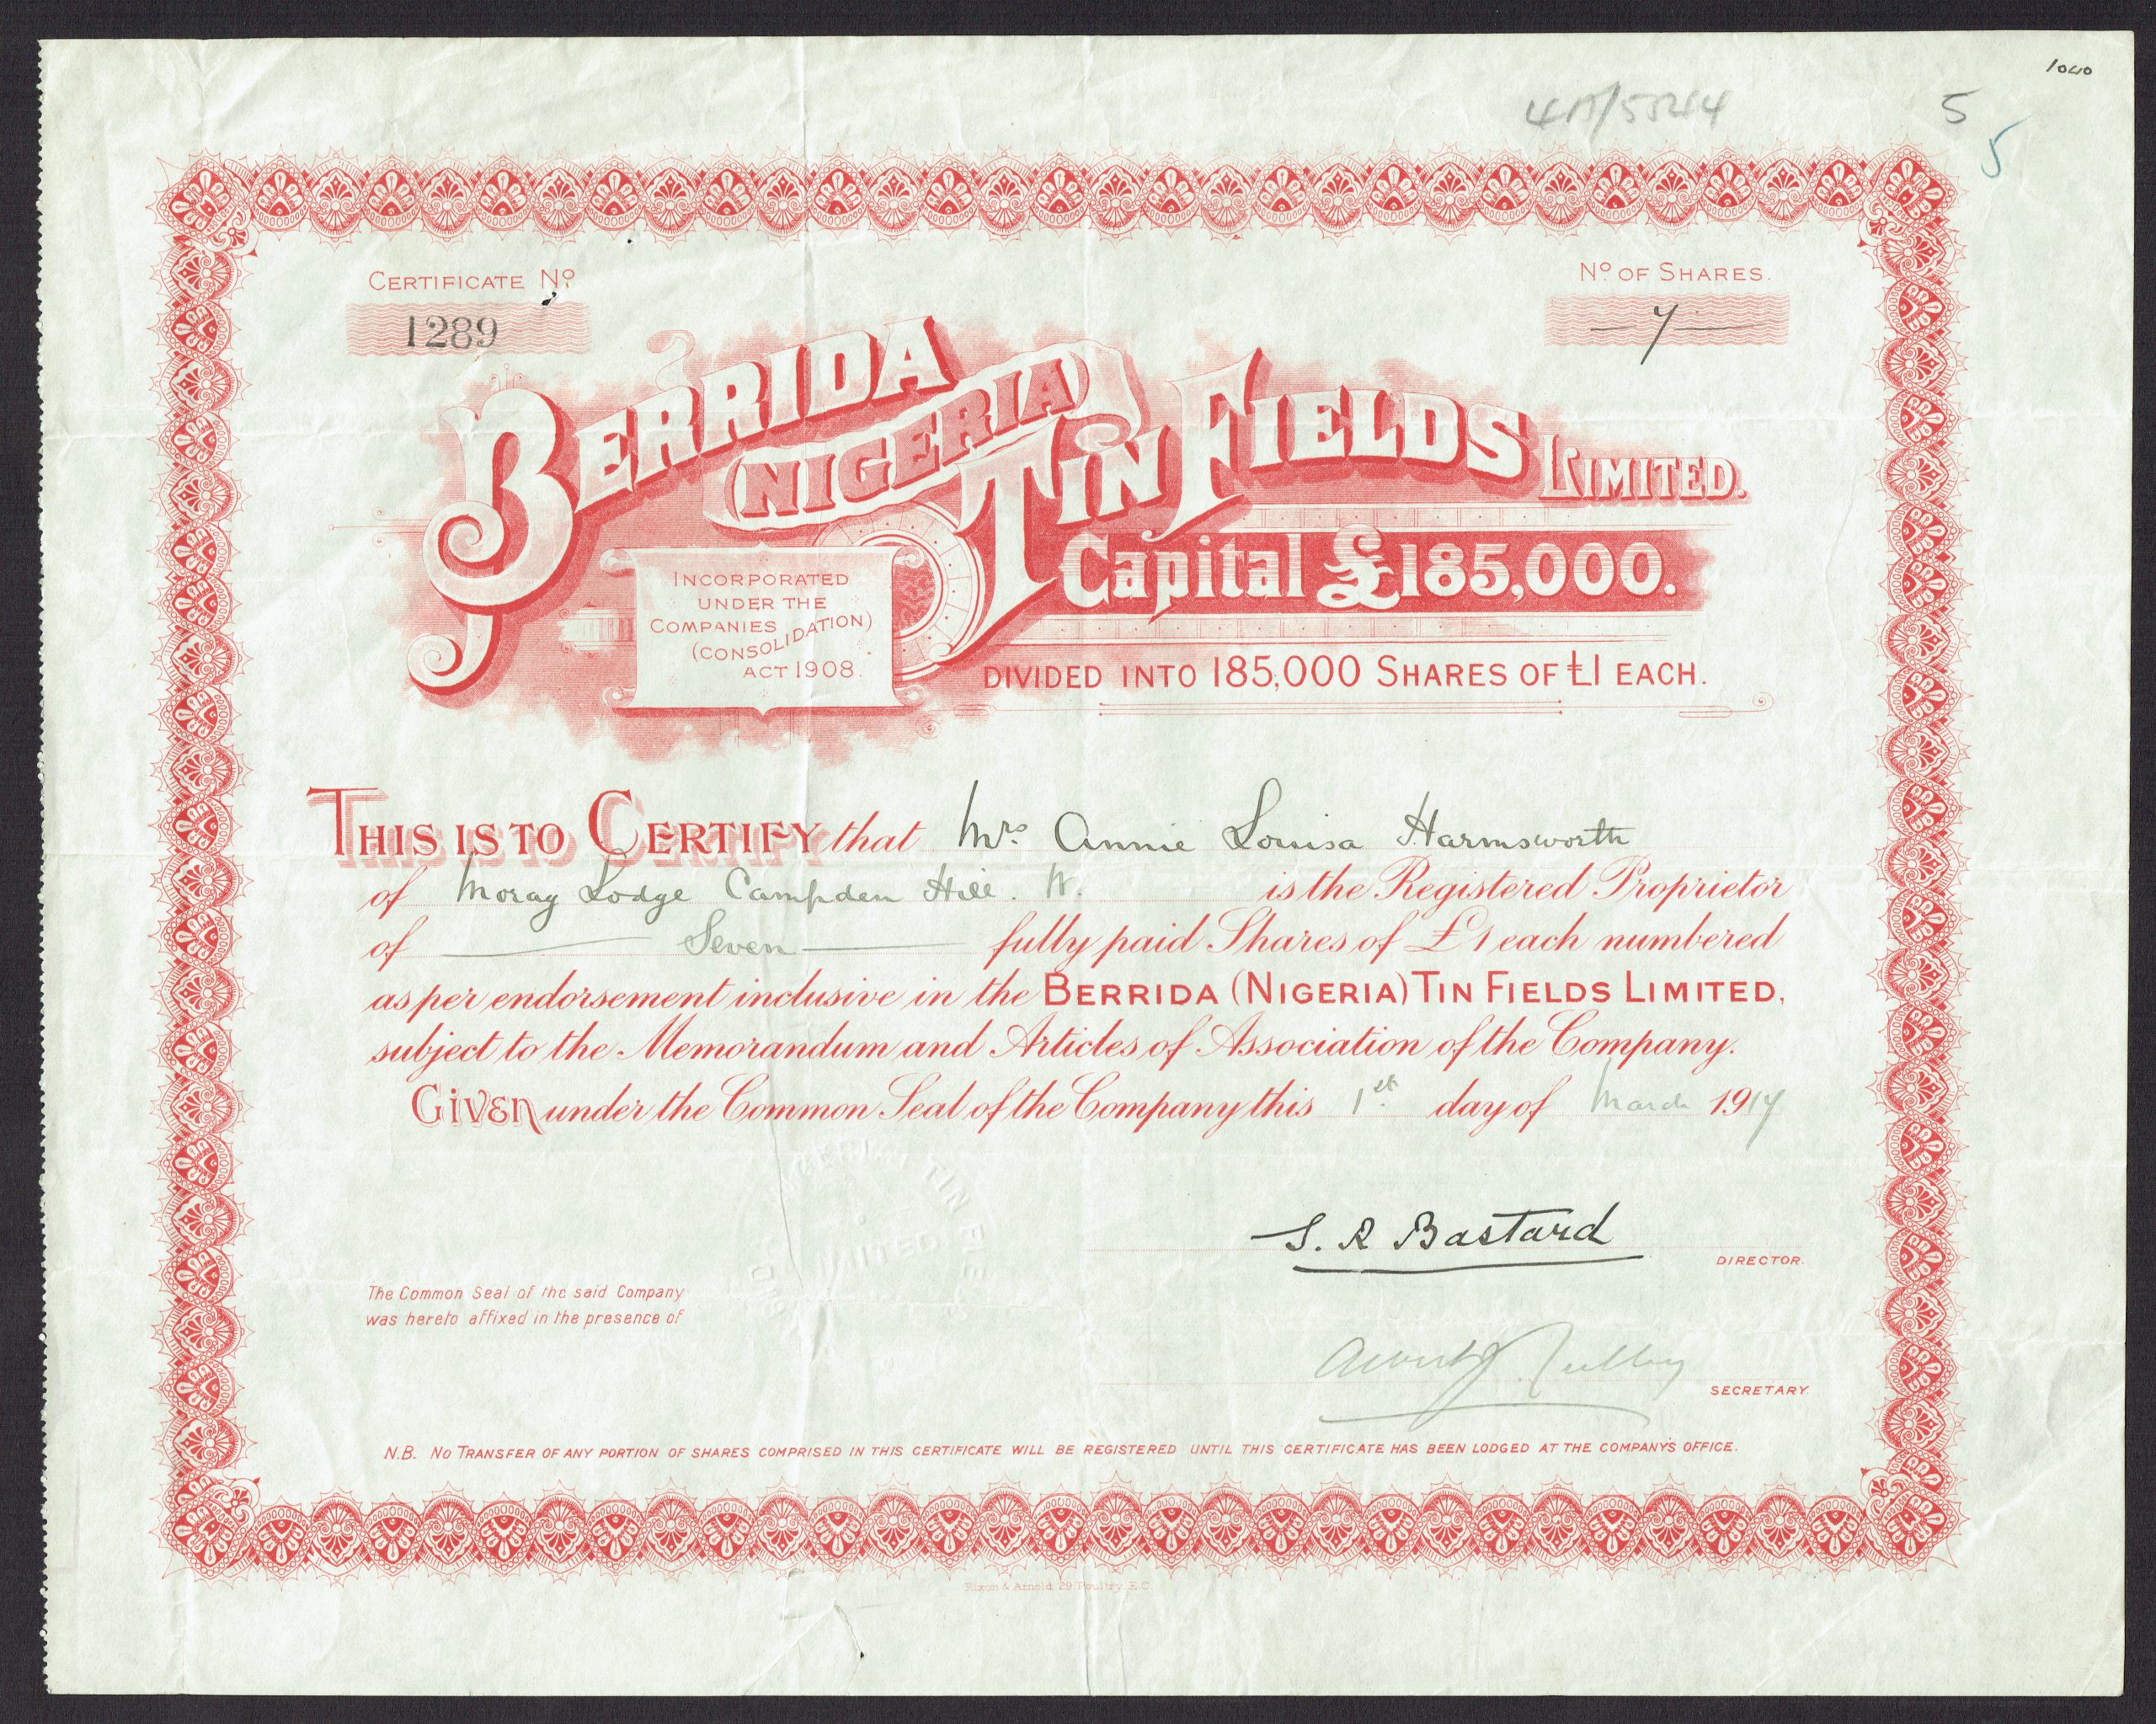 1040
5
5
CERTIFICATE No
1289
No OF SHARES.
7
BERRIDA
(NIGERIA)
TIN FIELDS LIMITED.
Capital £185,000.
INCORPORATED
UNDER THE
COMPANIES
(CONSOLIDATION)
ACT 1908.
DIVIDED INTO 185,000 SHARES OF £1 EACH.
THIS IS TO CERTIFY that Mrs Annie Louisa Harmsworth
of Moray Lodge Campden Hill. W. is the Registered Proprietor
of Seven fully paid Shares of £1 each numbered
as per endorsement inclusive in the BERRIDA (NIGERIA) TIN FIELDS LIMITED,
subject to the Memorandum and Articles of Association of the Company.
GIVEN under the Common Seal of the Company this 1st day of March 1917
S. R Bastard
DIRECTOR.
The Common Seal of the said Company
was hereto affixed in the presence of
SECRETARY.
N.B. NO TRANSFER OF ANY PORTION OF SHARES COMPRISED IN THIS CERTIFICATE WILL BE REGISTERED UNTIL THIS CERTIFICATE HAS BEEN LODGED AT THE COMPANY'S OFFICE.
Rixon & Arnold. 29. Poultry. E.C.